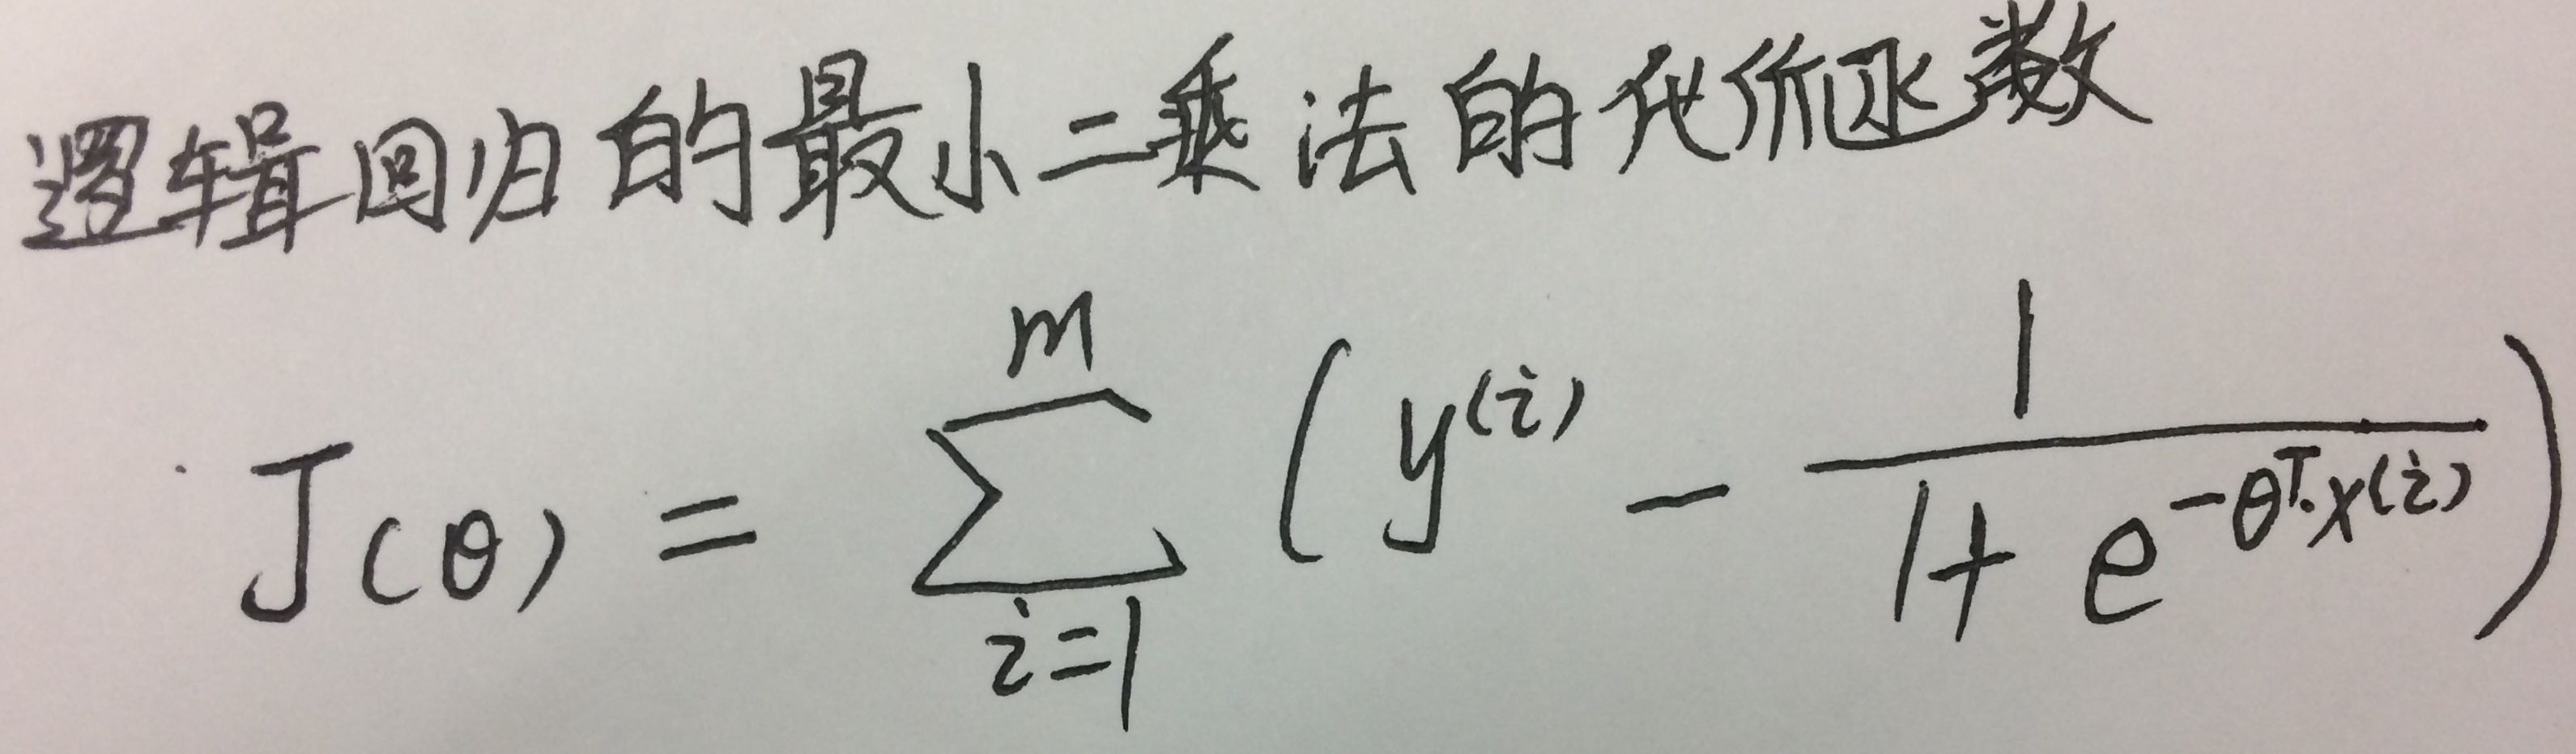 逻辑回归的最小二乘法的代价函数
J(θ) = \sum_{i=1}^{m} ( y^{(i)} - \frac{1}{1 + e^{-θ^T·x^{(i)}}} )